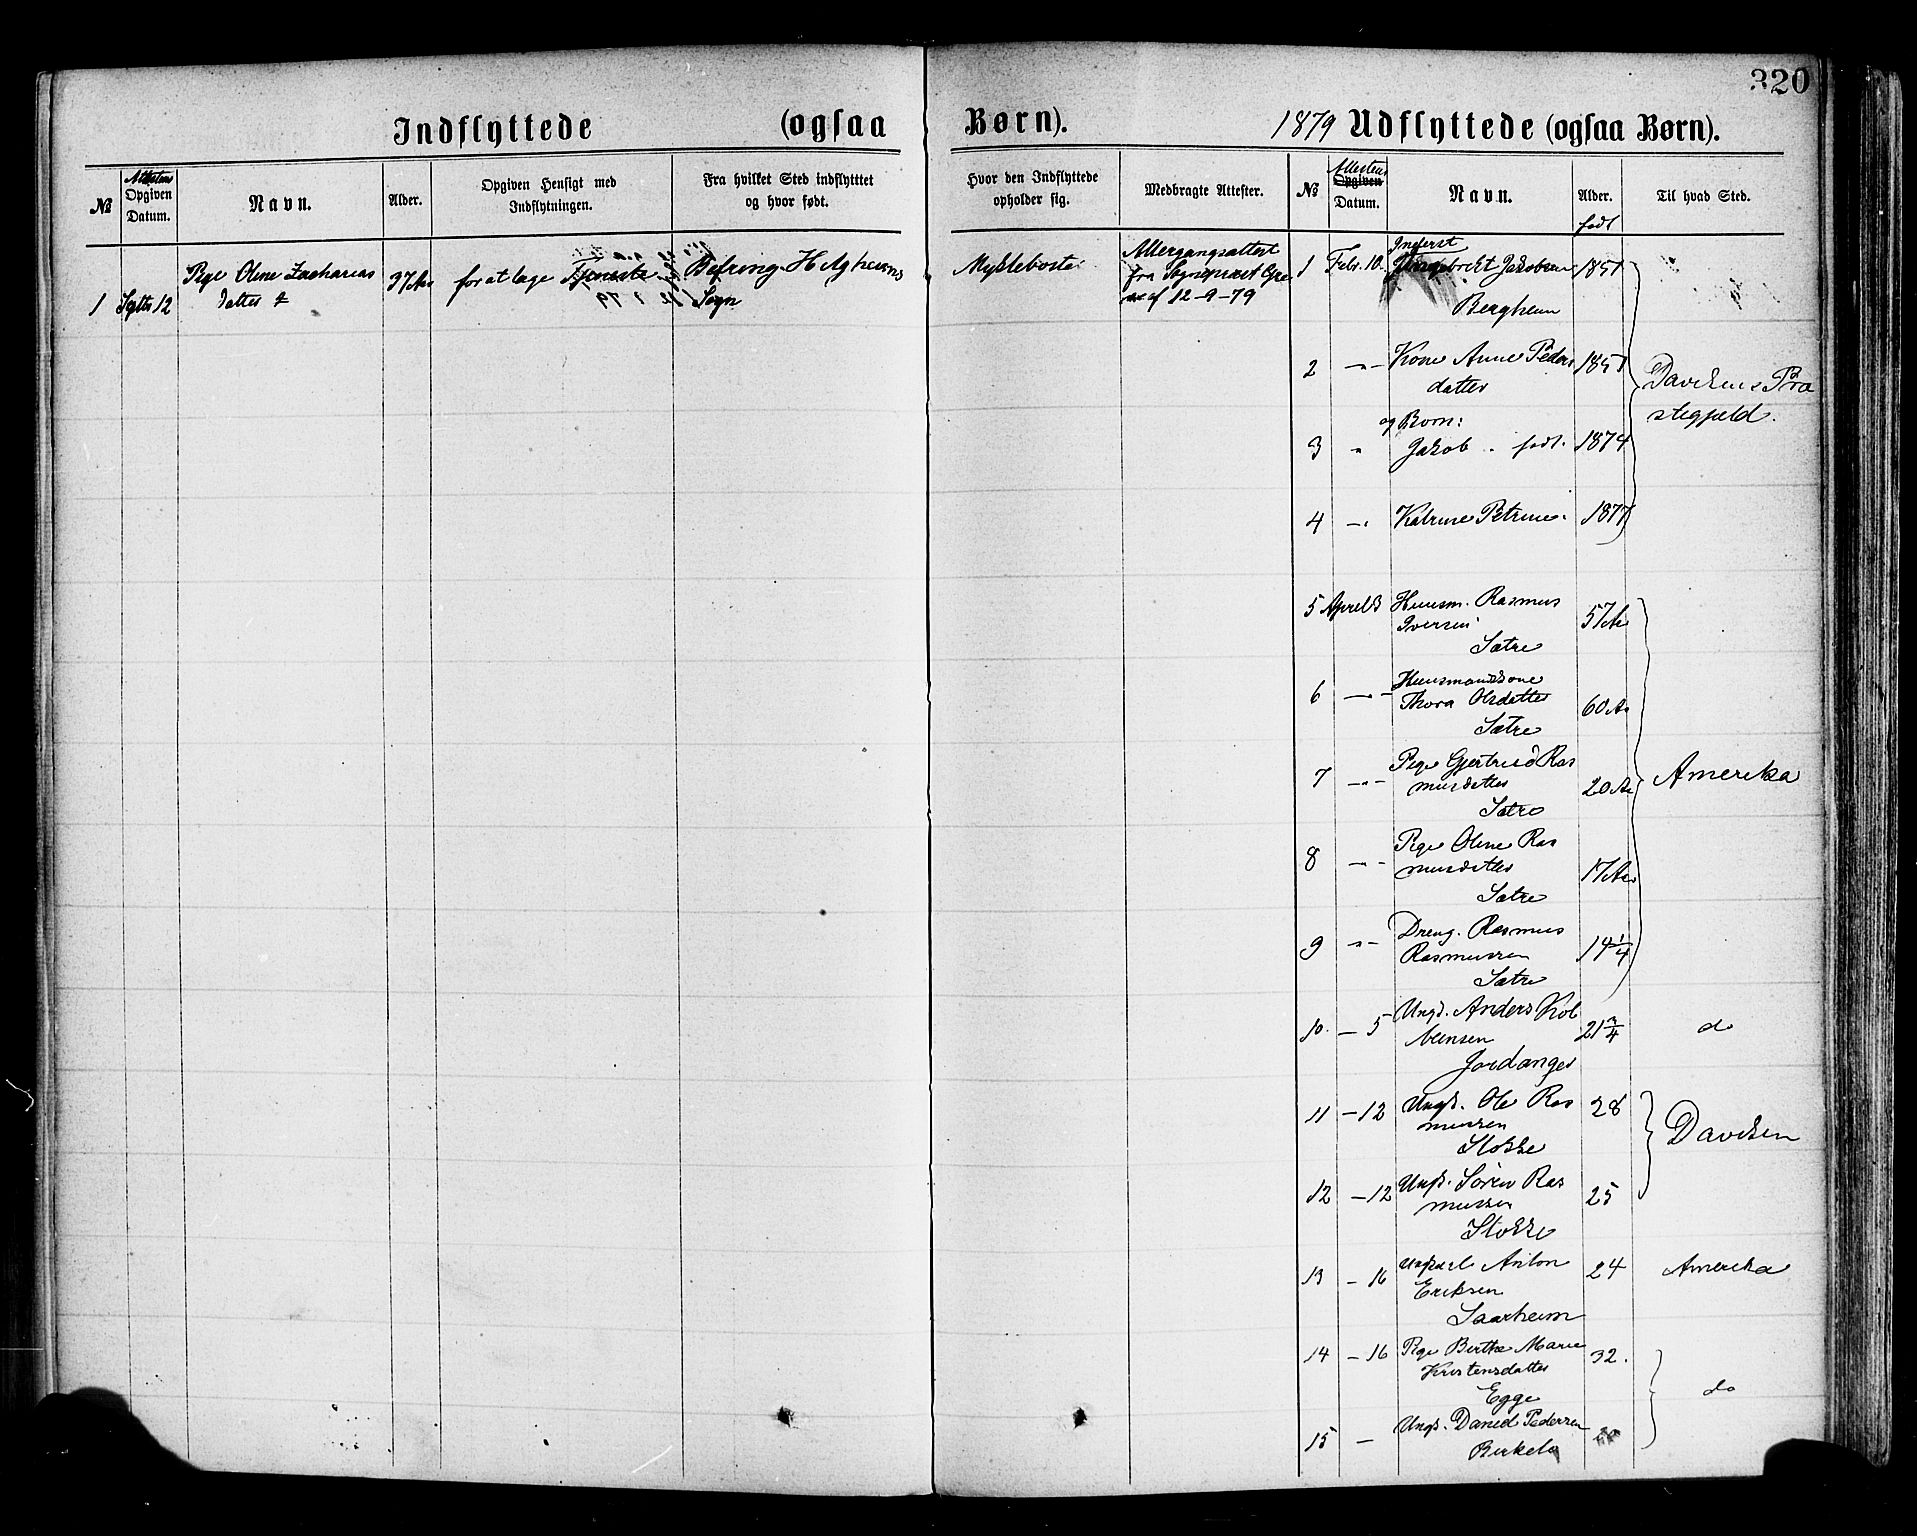 320
Indflyttede (ogsaa Børn).
1879 Udflyttede (ogsaa Børn).
№
Attestens
Opgiven
Datum.
Navn.
Alder.
Opgiven Hensigt med
Indflytningen.
Fra hvilket Sted indflytttet
og hvor født.
Hvor den Indflyttede
opholder sig.
Medbragte Attester.
№
Attestens
Opgiven
Datum.
Navn.
Alder.
født
Til hvad Sted.
1 Septbr 12 Pige Oline Zacharias
datter
37 Aar
for at tage Tjeneste
Befring
Sogn
Myklebost
Altergangsattest
fra Sognepræst
af 12-9-79
1 Febr. 10. Inderst
Ingebrikt Jakobsen 1851
Bergheim
2 -"- Kone Anne Peders
datter 1851
Davikens Præ
stegjeld.
og Børn:
3 " Jakob . født. 1874
4 -" Katrine Petrine. 1877
5 April 3 Huusm. Rasmus
Iversen 57 Aar
Sætre
6 -"- Huusmandskone
Thora Olsdatter 60 Aar
Sætre
7 -"- Pige Gjertrud Ras
musdatter 20 Aar
Sætre
Amerika
8 -"- Pige Oline Ras
musdatter 17 Aar
Sætre
9 "- Dreng. Rasmus
Rasmussen 14 1/4
Sætre
10. - 5 Ungk. Anders Kol
beinsen 21 3/4
Jordanger
do
11 - 12 Ungk. Ole Ras 28
mussen
Stokke
Daviken
12 - 12 Ungk. Søren Ras
mussen 25
Stokke
13 - 16 Ungkarl Anton 24 Amerika
Eriksen
Saarheim
14 - 16 Pige Birthe Marie 32.
Kristensdatter
Egge
do
15 - Ungk. Daniel Pedersen
Birkelo